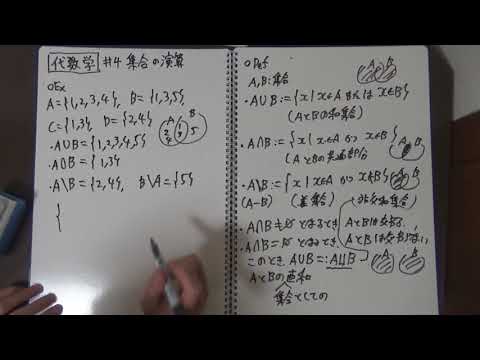 代数学 #4 集合の演算
○Ex
A={1,2,3,4}, B={1,3,5}
C={1,3}, D={2,4}
・A∪B={1,2,3,4,5}
・A∩B={1,3}
・A\B={2,4}, B\A={5}
{
A B
2 4 1 3 5
○Def
A,B:集合
・A∪B:={x|x∈A または x∈B}
(AとBの和集合)
A B
・A∩B:={x|x∈A かつ x∈B}
(AとBの共通部分)
A B
・A\B:={x|x∈A かつ x∉B}
(A-B) (差集合)
A B
非交和集合
・A∩B≠∅ となるとき AとBは交わる,
A∩B=∅ となるとき AとBは交わらない
このとき A∪B=:A⊔B
A B
AとBの直和
集合としての